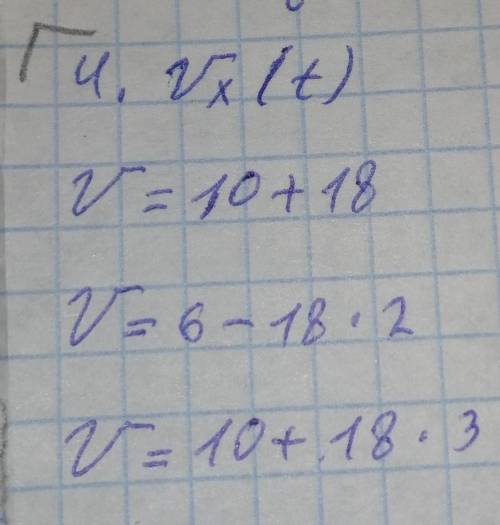 4. Vx(t)
V = 10 + 18
V = 6 - 18 · 2
V = 10 + 18 · 3